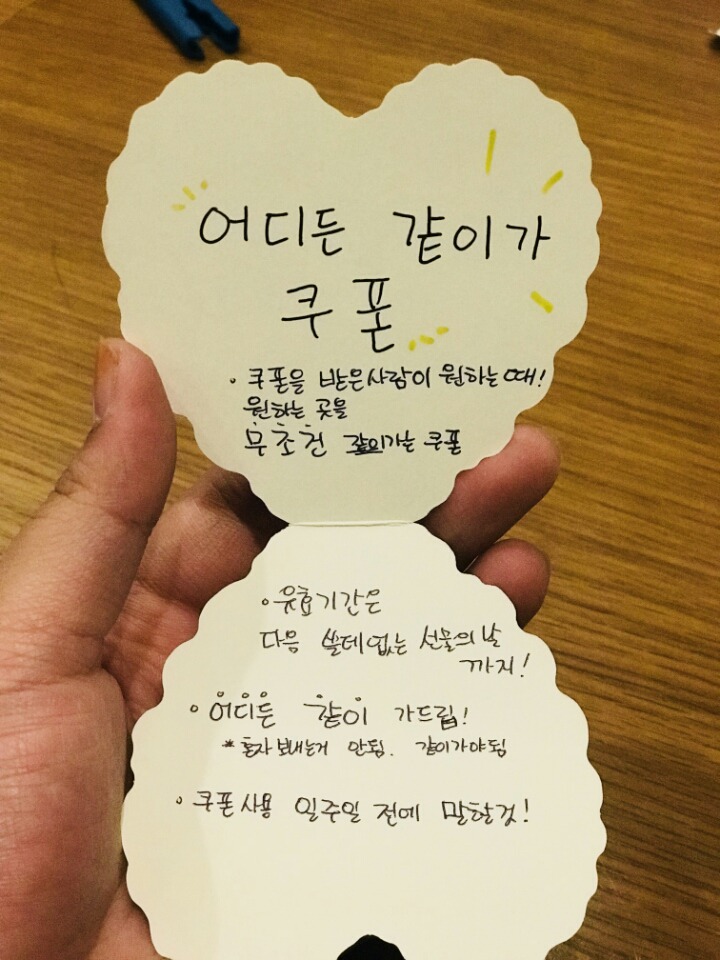 어디든 같이가
쿠폰
· 쿠폰을 받은사람이 원하는때!
원하는 곳을
무조건 같이가는 쿠폰
· 유효기간은
다음 쓸데없는 선물의날
까지!
· 어디든 같이 가드림!
* 혼자보내는거 안됨. 같이가야됨
· 쿠폰사용 일주일 전에 말할것!